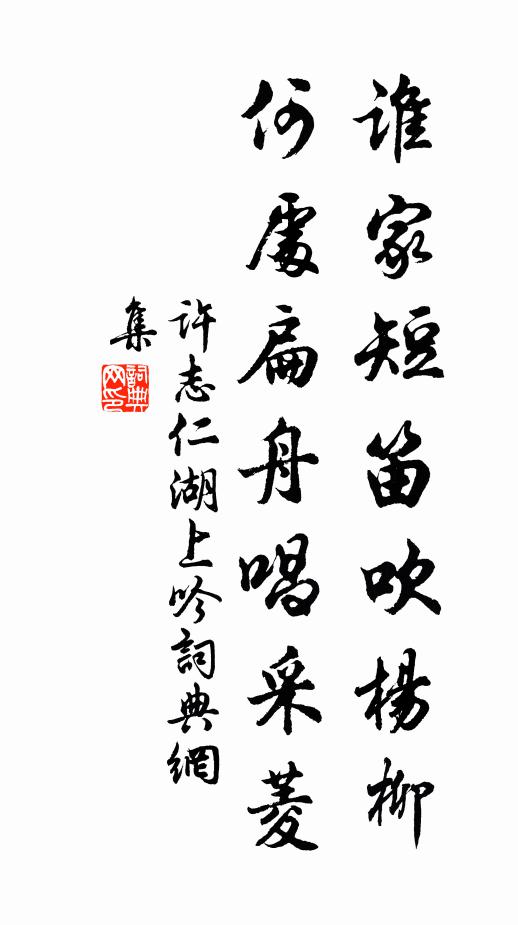 誰家短笛吹楊柳
何處扁舟唱采菱
許志仁湖上吟詞典網
集
詞典網印